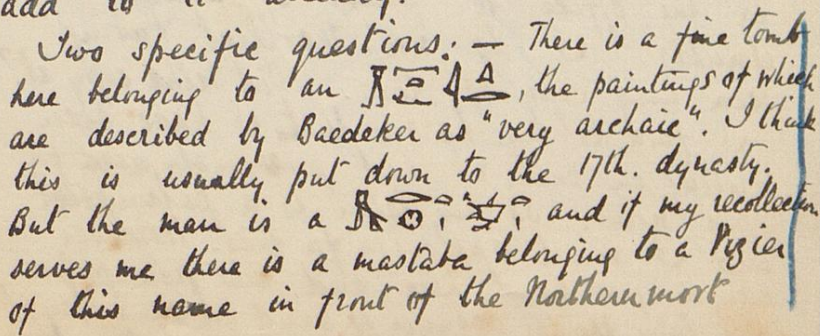 add to it
Two specific questions: — There is a fine tomb
here belonging to an , the paintings of which
are described by Baedeker as "very archaic". I think
this is usually put down to the 17th. dynasty.
But the man is a and if my recollection
serves me there is a mastaba belonging to a Vizier
of this name in front of the Northernmost